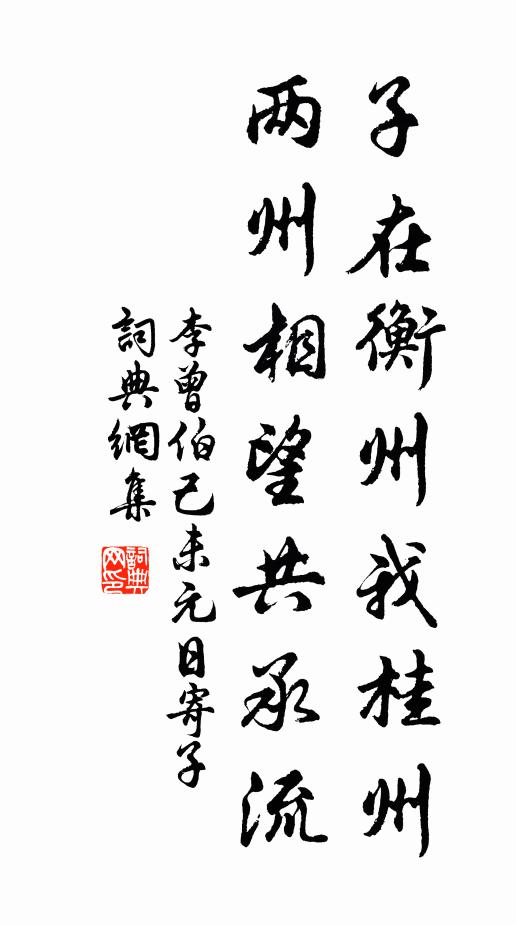 子在衡州我桂州
两州相望共承流
李曾伯己未元日寄子
詞典網集
詞典网印